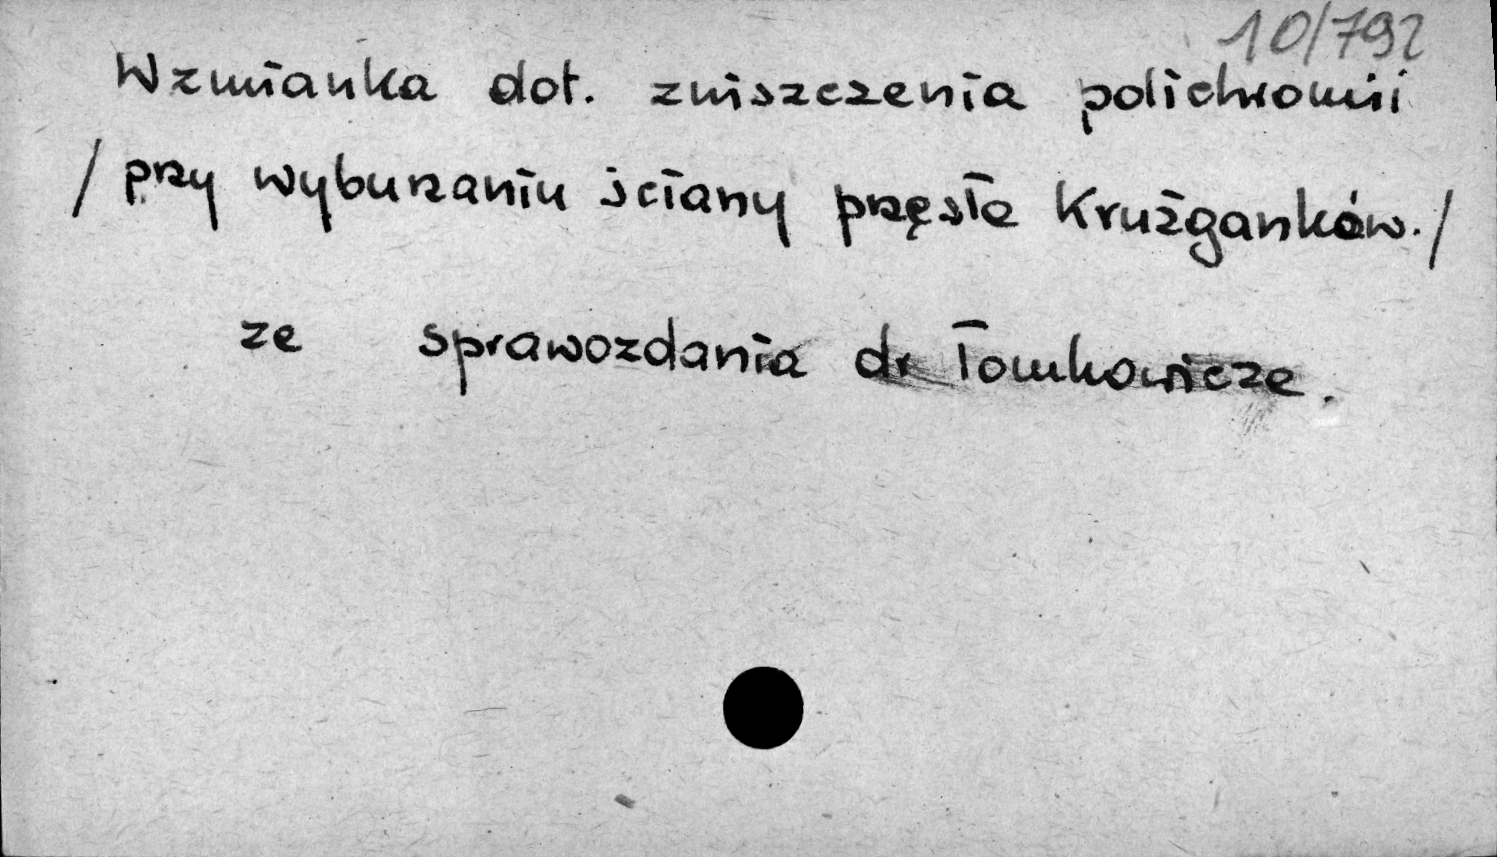 10/792
Wzmianka dot. zniszczenia polichromii
/ przy wyburzaniu ściany przęsła Krużganków. /
ze sprawozdania dr Tomkowicza.